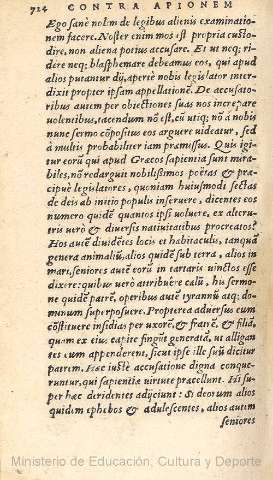 724 CONTRA APIONEM
Ego sane nolim de legibus alienis examinatio-
nem facere. Noster enim mos est propria custo-
dire, non aliena potius accusare. Et ut neq; ri-
dere neq; blasphemare debeamus eos, qui apud
alios putantur dij, aperte nobis legislator inter-
dixit propter ipsam appellationē. De accusato-
ribus autem per obiectiones suas nos increpare
uolentibus, tacendum nō est, cū utiq; nō à nobis
nunc sermo cōpositus eos arguere uideatur, sed
à multis probabiliter iam præmissus. Quis igi-
tur eorū qui apud Græcos sapientia sunt mira-
biles, nō redarguit nobilissimos poëtas & præ-
cipuè legislatores, quoniam huiusmodi sectas
de deis ab initio populi inseruere, dicentes eos
numero quidē quantos ipsi uoluere, ex alteru-
tris uerò & diuersis natiuitatibus procreatos?
Hos autē diuidētes locis et habitaculis, tanquā
genera animaliū, alios quidē sub terra, alios in
mari, seniores autē eorū in tartaris uinctos esse
dixere: quibus uerò attribuēre cælū, his sermo-
ne quidē patrē, operibus autē tyrannū atq; do-
minum superposuere. Propterea aduersus eum
cōstituere insidias per uxorē, & fratrē, & filiā,
quam ex eius capite fingūt generatā, ut alligan-
tes eum appenderent, sicut ipse ille suū dicitur
patrem. Hæc iustè accusatione digna conque-
runtur, qui sapientiæ uirtute præcellunt. Hi su-
per hæc deridentes adijciunt: Si deorum alios
quidem ephebos & adulescentes, alios autem
seniores
Ministerio de Educación, Cultura y Deporte